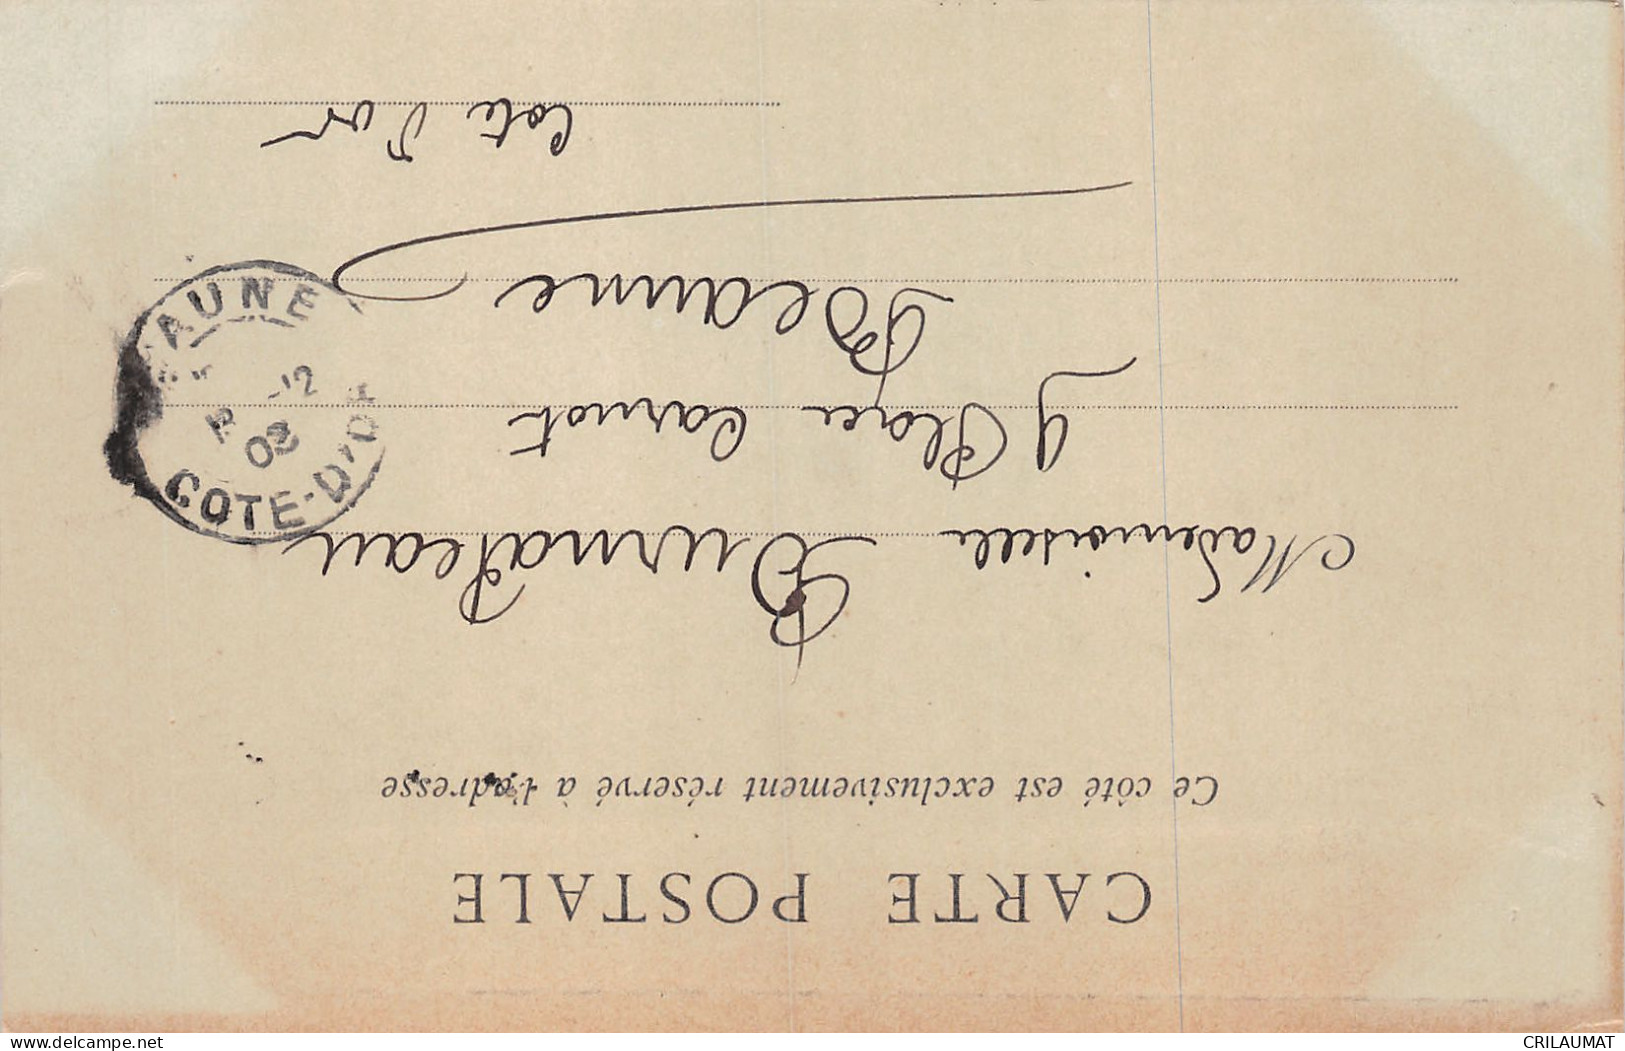 CARTE POSTALE
Ce côté est exclusivement réservé à l'adresse
Mademoiselle
9 Place Carnot
Beaune
Cote d'or
BEAUNE
-12
02
COTE-D'OR
www.delcampe.net
CRILAUMAT